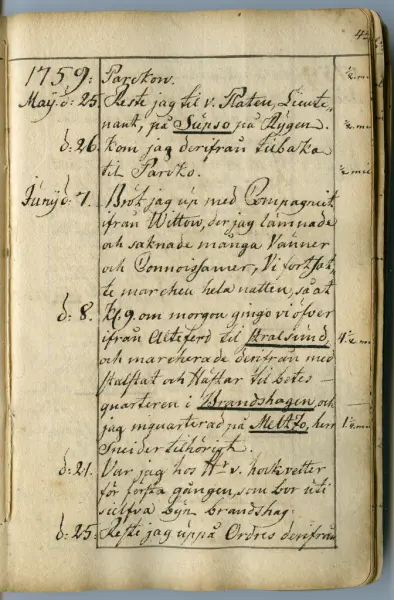 45
1759: Parckow.
Maÿ d: 25. Reste jag til v. Platen, Lieute- ½ mi
nant, på Süpso på Rÿgen. ½ mi
d: 26. kom jag derifrån tilbaka
til Parcko. ½ mil
Junÿ d: 7. Bröt jag up med Compagniet
ifrån Wittow, der jag lämnade
och saknade många Vänner
och Connoissancer, Vi fortsat-
te marchen hela natten, så at
d: 8. kl 9. om morgon gingo vi öfver
ifrån Alteferd til Stralsund, 4½ mi
och marcherade derifrån med
stalstat och Hästar til betes-
quarteren i Brandshagen, och
jag inquarterad på Meltzo, herr 1½ mi
Sneider tilhörigt.
d: 21. Var jag hos Hr v.
för första gången, som bor uti
sielfva bÿn brandshag:
d: 25. Reste jag uppå Ordres derifrån